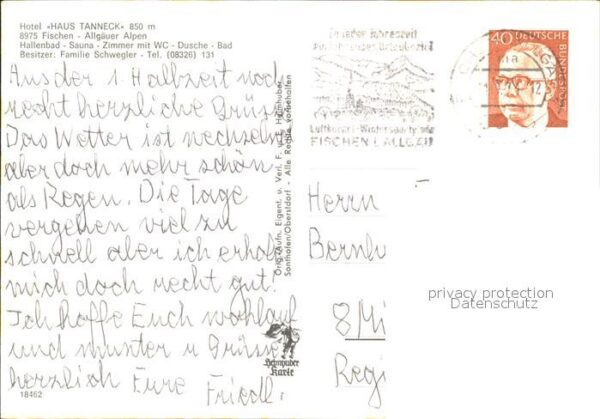 Hotel «HAUS TANNECK» 850 m
8975 Fischen - Allgäuer Alpen
Hallenbad - Sauna - Zimmer mit WC - Dusche - Bad
Besitzer: Familie Schwegler - Tel. (08326) 131
Aus der 1. Halbzeit noch
recht herzliche Grüße
Das Wetter ist wechseln
aber doch mehr schön
als Regen. Die Tage
vergehen viel zu
schnell aber ich erhol
mich doch recht gut!
Ich hoffe Euch wohlauf
und munter u Grüsse
herzlich Eure Friedl.
18462
Orig. Aufn. Eigent. u. Verl. F. Heimhuber
Sonthofen/Oberstdorf - Alle Rechte vorbehalten
Heimhuber
Karte
In jeder Jahreszeit
Luftkurort - Wintersportplatz
FISCHEN I. ALLGÄU
40 DEUTSCHE
BUNDESPOST
Herrn
Bernh
8 Mü
Regi
privacy protection
Datenschutz